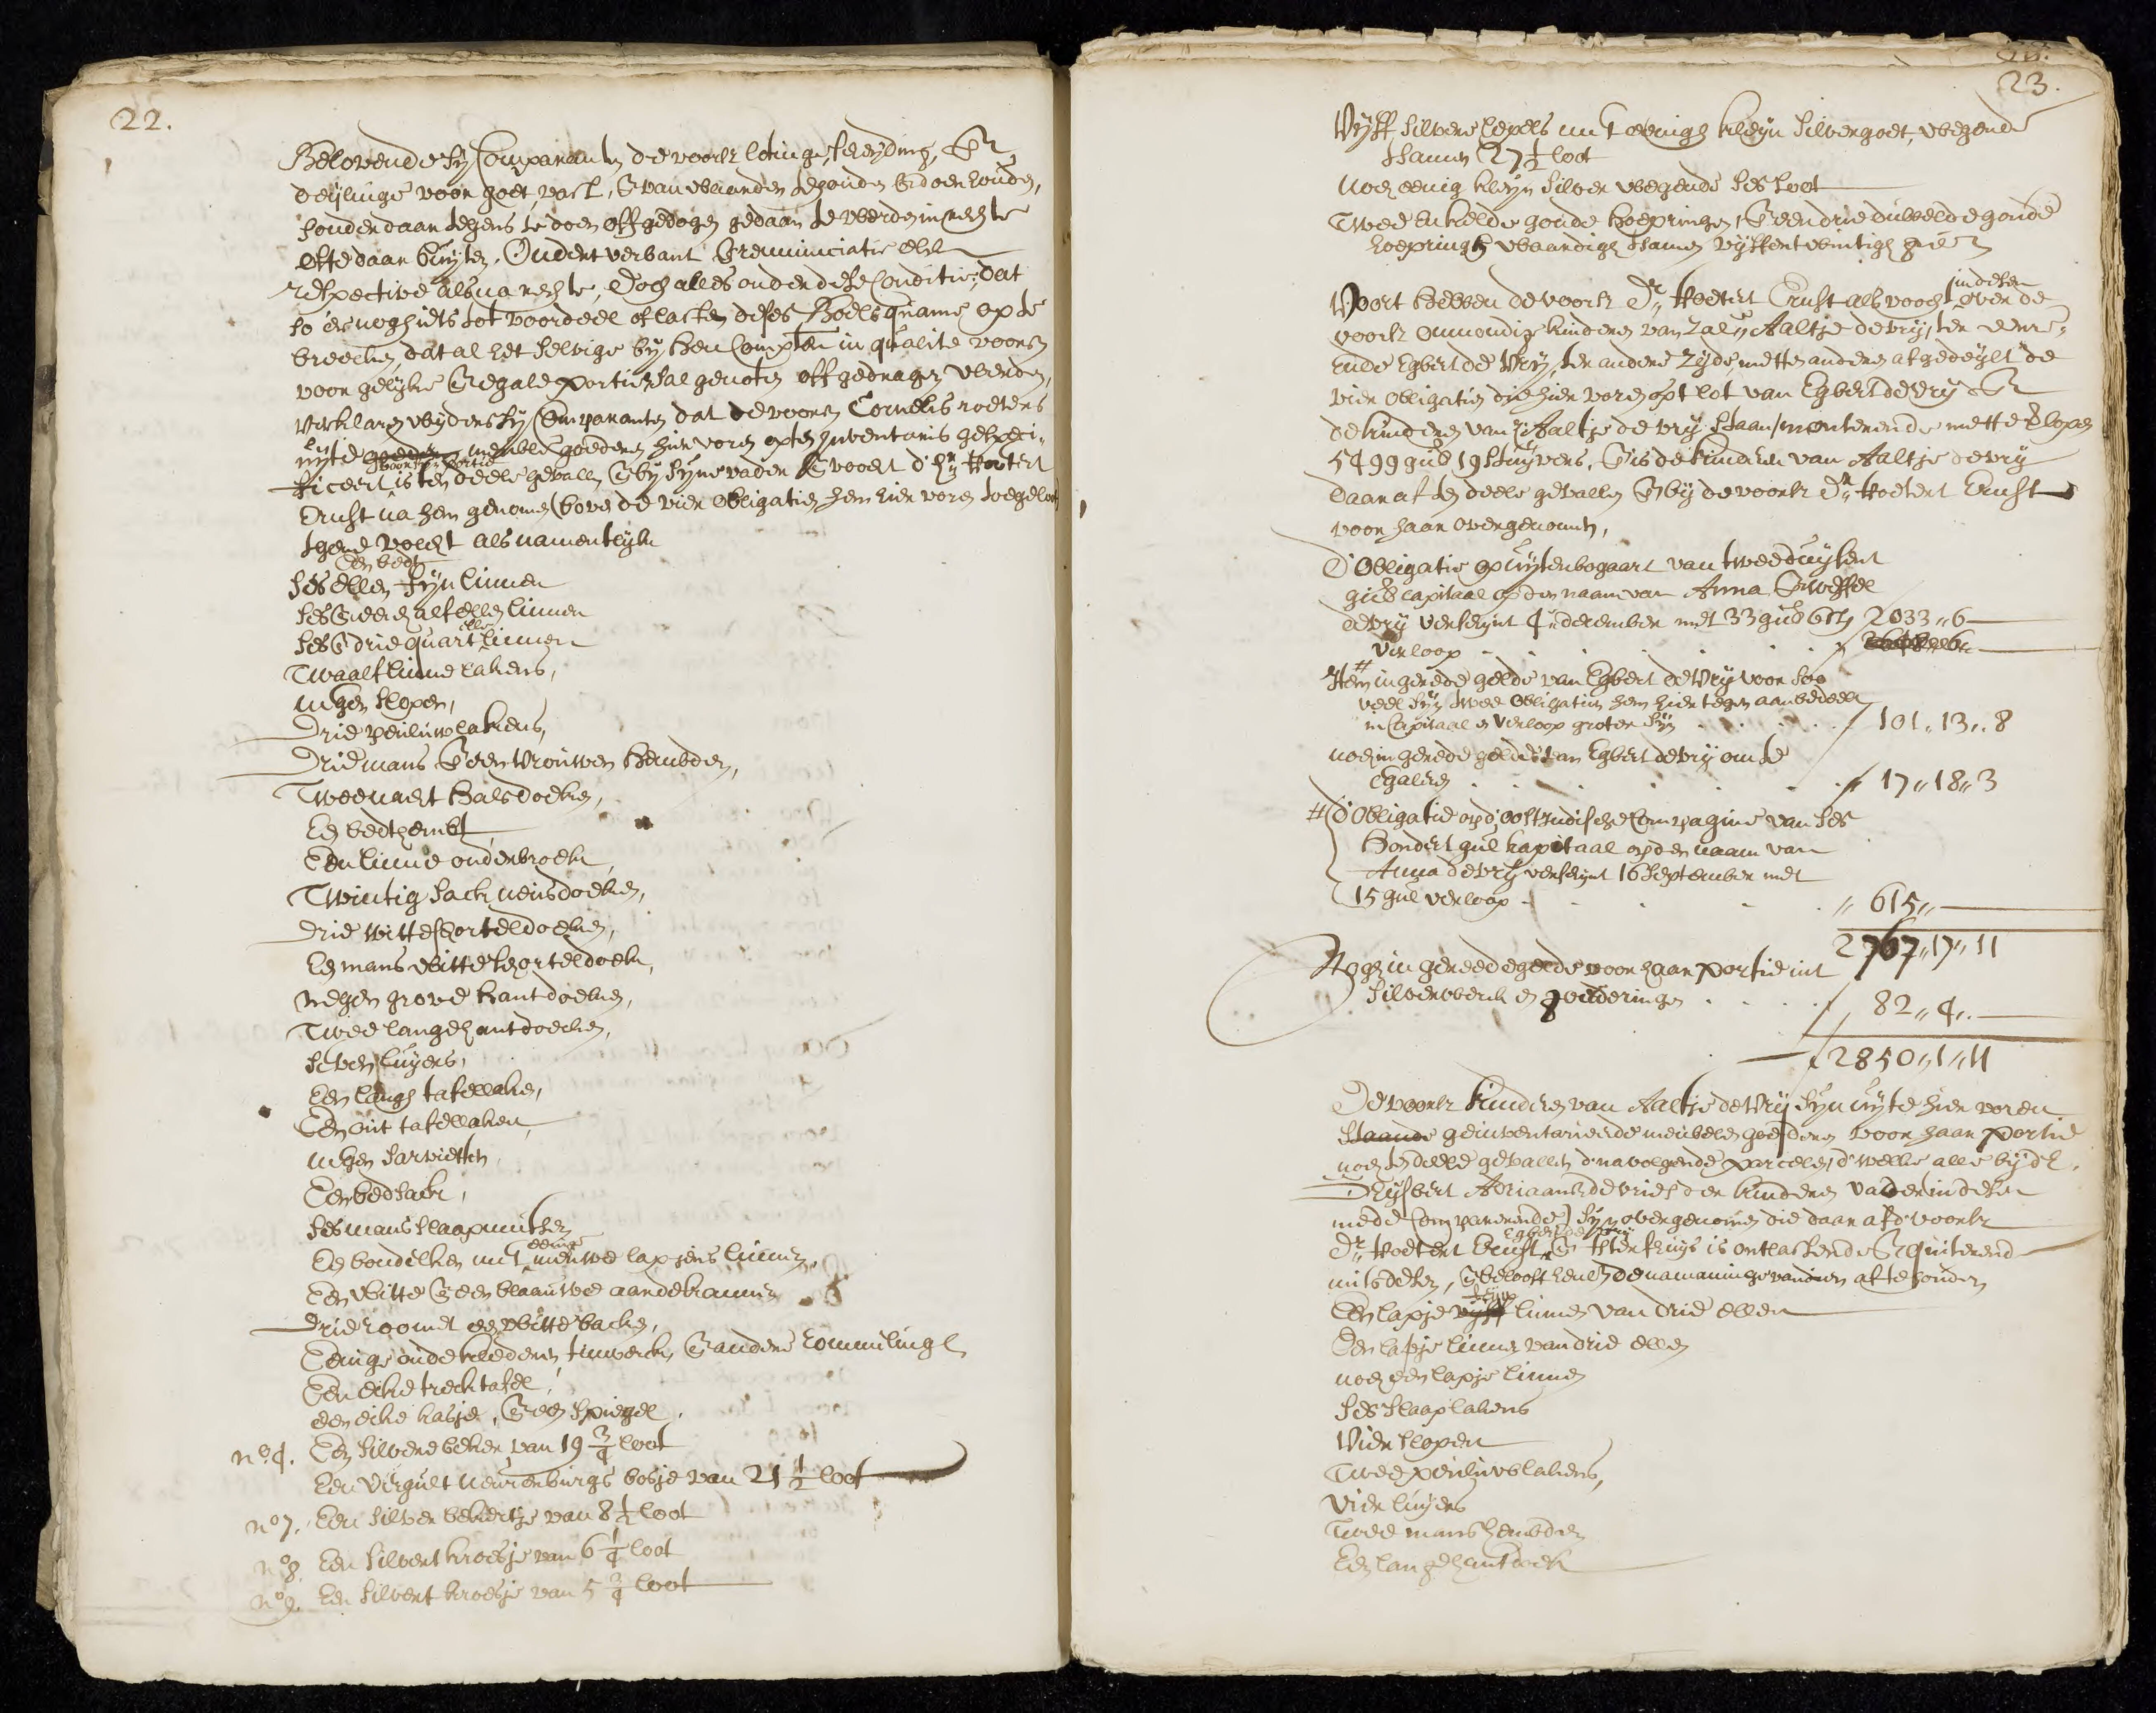 22.
Belovende sij Comparanten de voorsz lotinge, scheijding, &
deijlinge voor goet, vast, & van waerden te houden & doen houden,
sonder daar tegens te doen off gedogen gedaan te werden in rechte
ofte daar buijten. Onder verbant & renunciatie elx
respective als na rechte, Doch alles onder dese Conditie, dat
so 'er nogh iets tot voordeel of lasten deses Boels quame op te
breecken, dat al het selvige bij hen Compten in qualite voorn
voor gelijke & egale portien sal genoten off gedragen werden,
verklaren wijders sij Comparanten dat de voorn Cornelis roeters
uijte meuble goederen hier voren opten Inventaris gespeci-
voor sijn portie
ficeert is ten deele gevallen & bij sijne vader & voocht dhr Hoetert
Ernst na hem genomen (boven de vier obligatien hem hier voren toegeloot
tgene volcht als namentlijk
Een bedt
ses ellen fijn linnen
ses & een half ellen linnen
ses & drie quart ellen linnen
Twaalf linne lakens,
negen slopen,
Drie peuluwlakens,
Drie mans & een vrouwen hembden,
Twee nacht halsdoeken,
Een bedthembt
Een linne onderbroek,
Twintig sack neusdoeken,
Drie witte schorteldoeken,
Een mans witte schorteldoek,
negen grove hantdoeken,
Twee lange hantdoecken,
seven luijers,
Een langh tafellaken,
Een out tafellaken,
negen servietten
Een bedsack,
ses mans slaapmutsen
Een bondelken met eenige nieuwe lapjens linnen,
Een witte & een blaauwe aarde kanne
Drie room & een witte backen,
Eenige oude klederen tinwerck & andere rommelingh
Een eike trecktafel,
een eike kasje, & een spiegel,
no 4. Een silvere beker van 19 3/4 loot
Een vergult neurenburgs bosje van 21 1/2 loot
no 7. Een silver bekertje van 8 1/2 loot
no 8. Een silvert kroesje van 6 1/4 loot
no 9. Een silvert kroesje van 5 3/4 loot
23.
Vijff silvere lepels met eenigh kleijn silvergoet, wegende
tsamen 27 1/2 loot
noch eenig kleijn silver wegende ses loot
Twee enkelde goude hoepringen, & een drie dubbelde goude
hoepringh waardigh tsamen vijffentwintigh gl
Voort hebben de voorsz Dr Hoetert Ernst als voocht in desen over de
voorsz onmondige kinderen van zalr Aaltje de vrij, ter eenre,
Ende Egbert de Vrij, ter andere zijde, mette anderen afgedeylt de
vier obligatien die hier voren opt lot van Egbert de vrij &
de kinderen van Aaltje de vrij staan, monterende mette verlopen
5499 guld 19 stuijvers, & is de kinderen van Aaltje de vrij
daar af ten deele gevallen & bij de voorsz Dr Hoetert Ernst
voor haar overgenomen,
D'obligatie op uijtenbogaart van twee duijsent
guld capitaal op den naam van Anna
de vrij verschijnt 4 december met 33 guld 6 st 2033 „ 6
verloop
Item in gerede gelde van Egbert de Vrij voor soo
veel sijn twee obligatien hem hier tegen aanbedeelt
in Capitaal en verloop groter sijn 101 „ 13 „ 8
noch in gerede gelde van Egbert de vrij om te
egaleren „ 17 „ 18 „ 3
# D'obligatie op d'oostindische Compagnie van ses
hondert gul kapitaal op den naam van
Anna de vrij verschijnt 16 september met
15 gul verloop „ 615 „
2767 „ 17 „ 11
Noch in gereede gelde voor haar portie int
silverwerck en goude ringen 82 „ 4 „
2850 „ 1 „ 11
De voorsz kinderen van Aaltje de Vrij sijn uijte hier voren
staande geinventarieerde meubelen goederen voor haar portie
noch ten deele gevallen d'navolgende parcelen, d'welke alle bij de
Gijsbert Adriaansz de vries der kinderen vader in desen
mede Comparerende sijn overgenomen die daar af d'voorsz
Egbert de vrij
Dr Hoetert Ernst & sterfhuijs is ontlastende & quiterend
mits desen, & belooft henlr de namaninge van dien af te houden
fijn
Een lapje linnen van drie ellen
Een lapje linnen van drie ellen
noch een lapje linnen
ses slaaplakens
Vier slopen
Twee peuluwlakens,
vier luijers
Twee manshembden
Een lange hantdoek